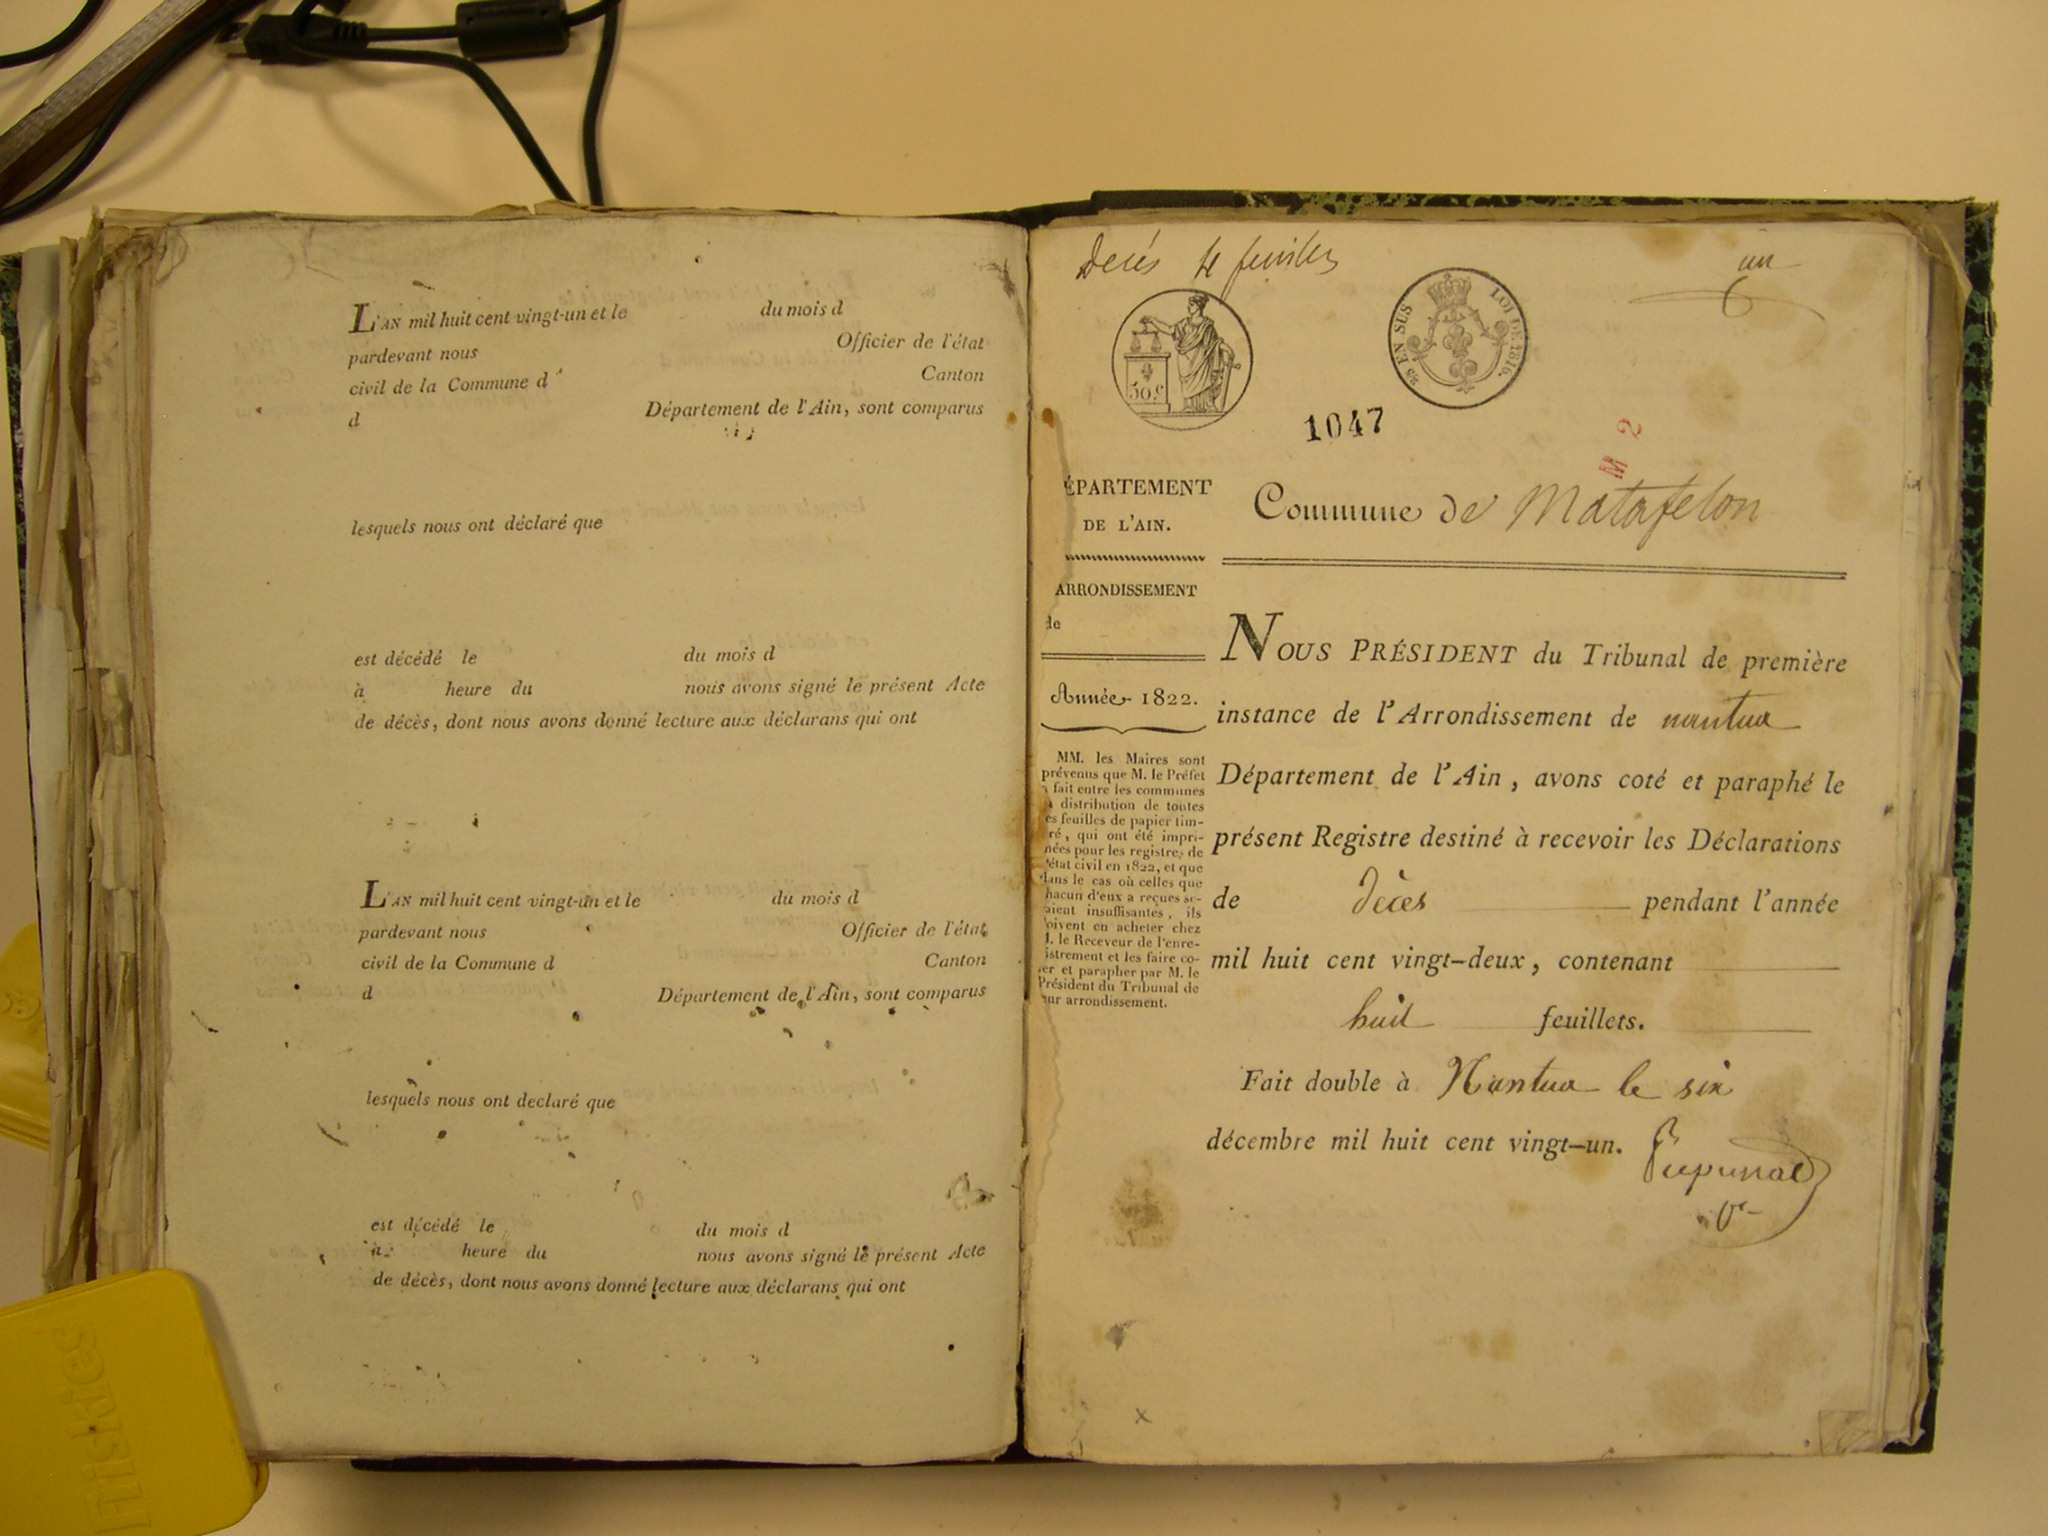 L'AN mil huit cent vingt-un et le du mois d
pardevant nous Officier de l'état
civil de la Commune d Canton
d Département de l'Ain, sont comparus
lesquels nous ont déclaré que
est décédé le du mois d
à heure du nous avons signé le présent Acte
de décès, dont nous avons donné lecture aux déclarans qui ont
L'AN mil huit cent vingt-un et le du mois d
pardevant nous Officier de l'état
civil de la Commune d Canton
d Département de l'Ain, sont comparus
lesquels nous ont declaré que
est décédé le du mois d
à heure du nous avons signé le présent Acte
de décès, dont nous avons donné lecture aux déclarans qui ont
Decés 4 feuilles
un
50 C.
25 EN SUS LOI DE 1816.
1047
M 2
ÉPARTEMENT
DE L'AIN.
Commune de Matafelon
ARRONDISSEMENT
de
Année 1822.
MM. les Maires sont
prévenus que M. le Préfet
a fait entre les communes
la distribution de toutes
es feuilles de papier tim-
ré, qui ont été impri-
mées pour les registres de
l'état civil en 1822, et que
dans le cas où celles que
hacun d'eux a reçues se-
aient insuffisantes, ils
oivent en acheter chez
M. le Receveur de l'enre-
istrement et les faire co-
ter et parapher par M. le
Président du Tribunal de
eur arrondissement.
NOUS PRÉSIDENT du Tribunal de première
instance de l'Arrondissement de nantua
Département de l'Ain, avons coté et paraphé le
présent Registre destiné à recevoir les Déclarations
de Décès pendant l'année
mil huit cent vingt-deux, contenant
huit feuillets.
Fait double à Nantua le six
décembre mil huit cent vingt-un.